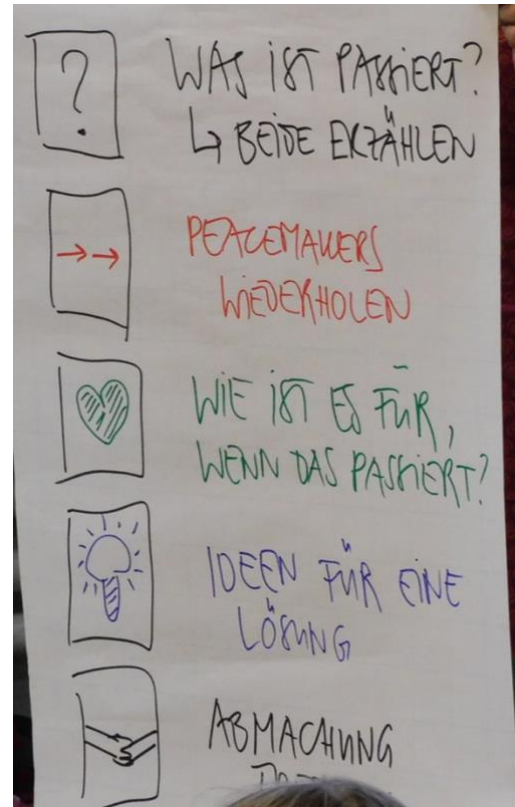 ?
WAS IST PASSIERT?
↳ BEIDE ERZÄHLEN
PEACEMAKERS
WIEDERHOLEN
WIE IST ES FÜR,
WENN DAS PASSIERT?
IDEEN FÜR EINE
LÖSUNG
ABMACHUNG